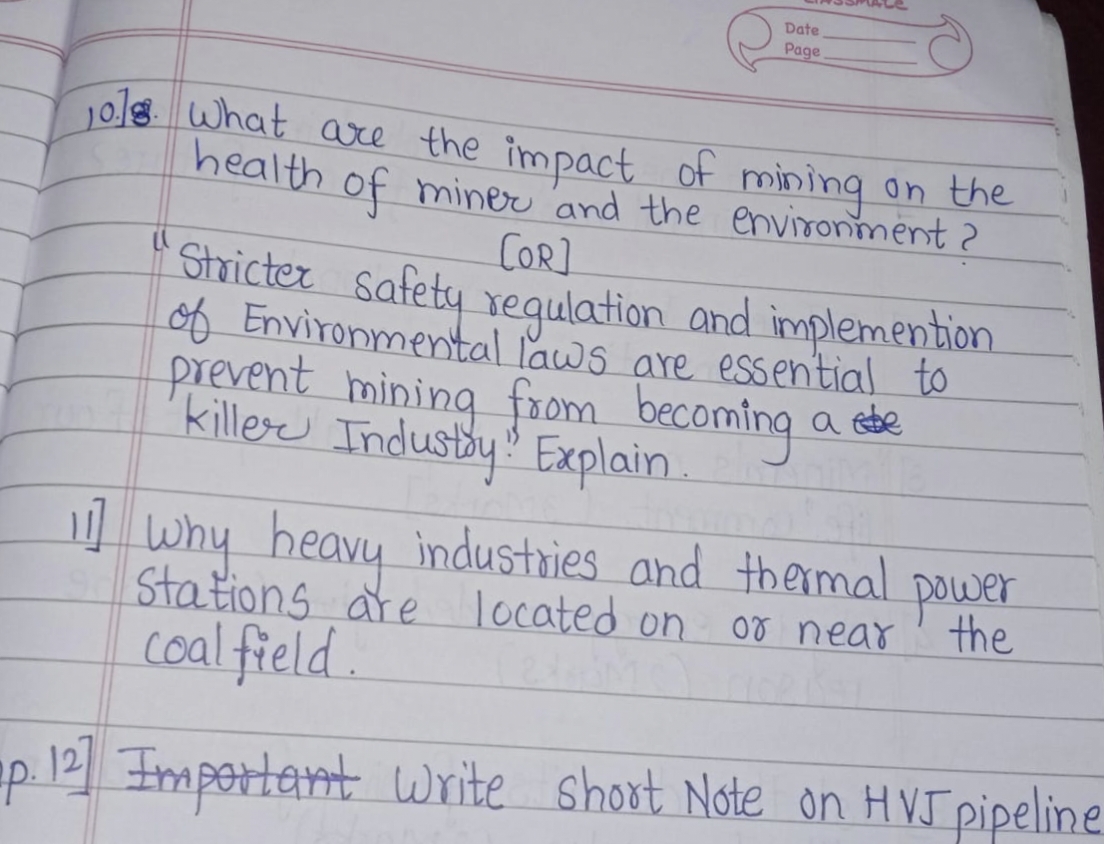 CLASSMATE
Date
Page
10.]8. What are the impact of mining on the
health of miner and the environment?
[OR]
"Stricter safety regulation and implemention
of Environmental laws are essential to
prevent mining from becoming a the
killer Industry." Explain.
11] Why heavy industries and thermal power
stations are located on or near the
coal field.
p. 12] Important Write short Note on HVJ pipeline